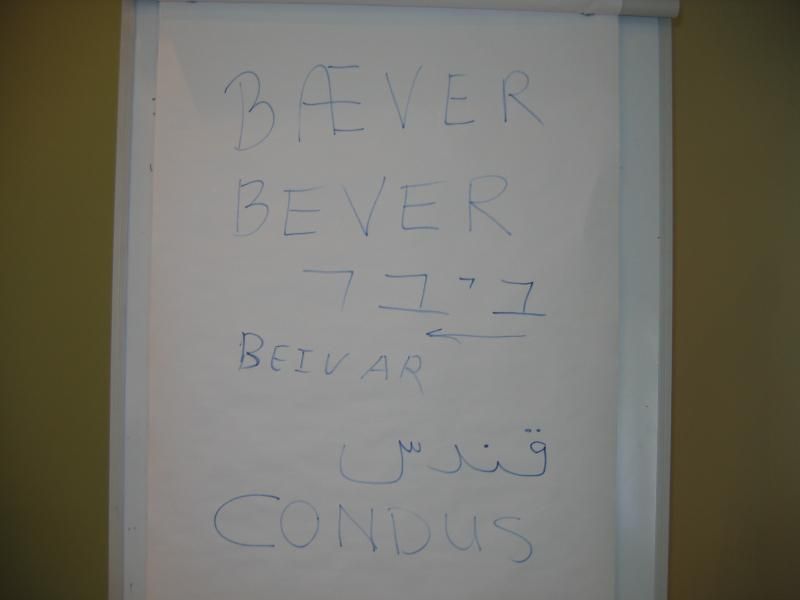 BÆVER
BEVER
ביבר
←
BEIVAR
قندس
CONDUS